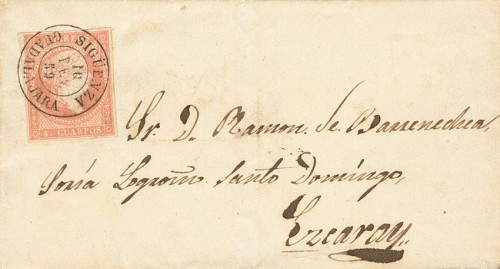 SIGÜENZA
18
59
GUADALAJARA
4 CUARTOS
Sr. D. Ramon de Barrenechea,
Soria Logroño Santo Domingo,
Ezcaray,,